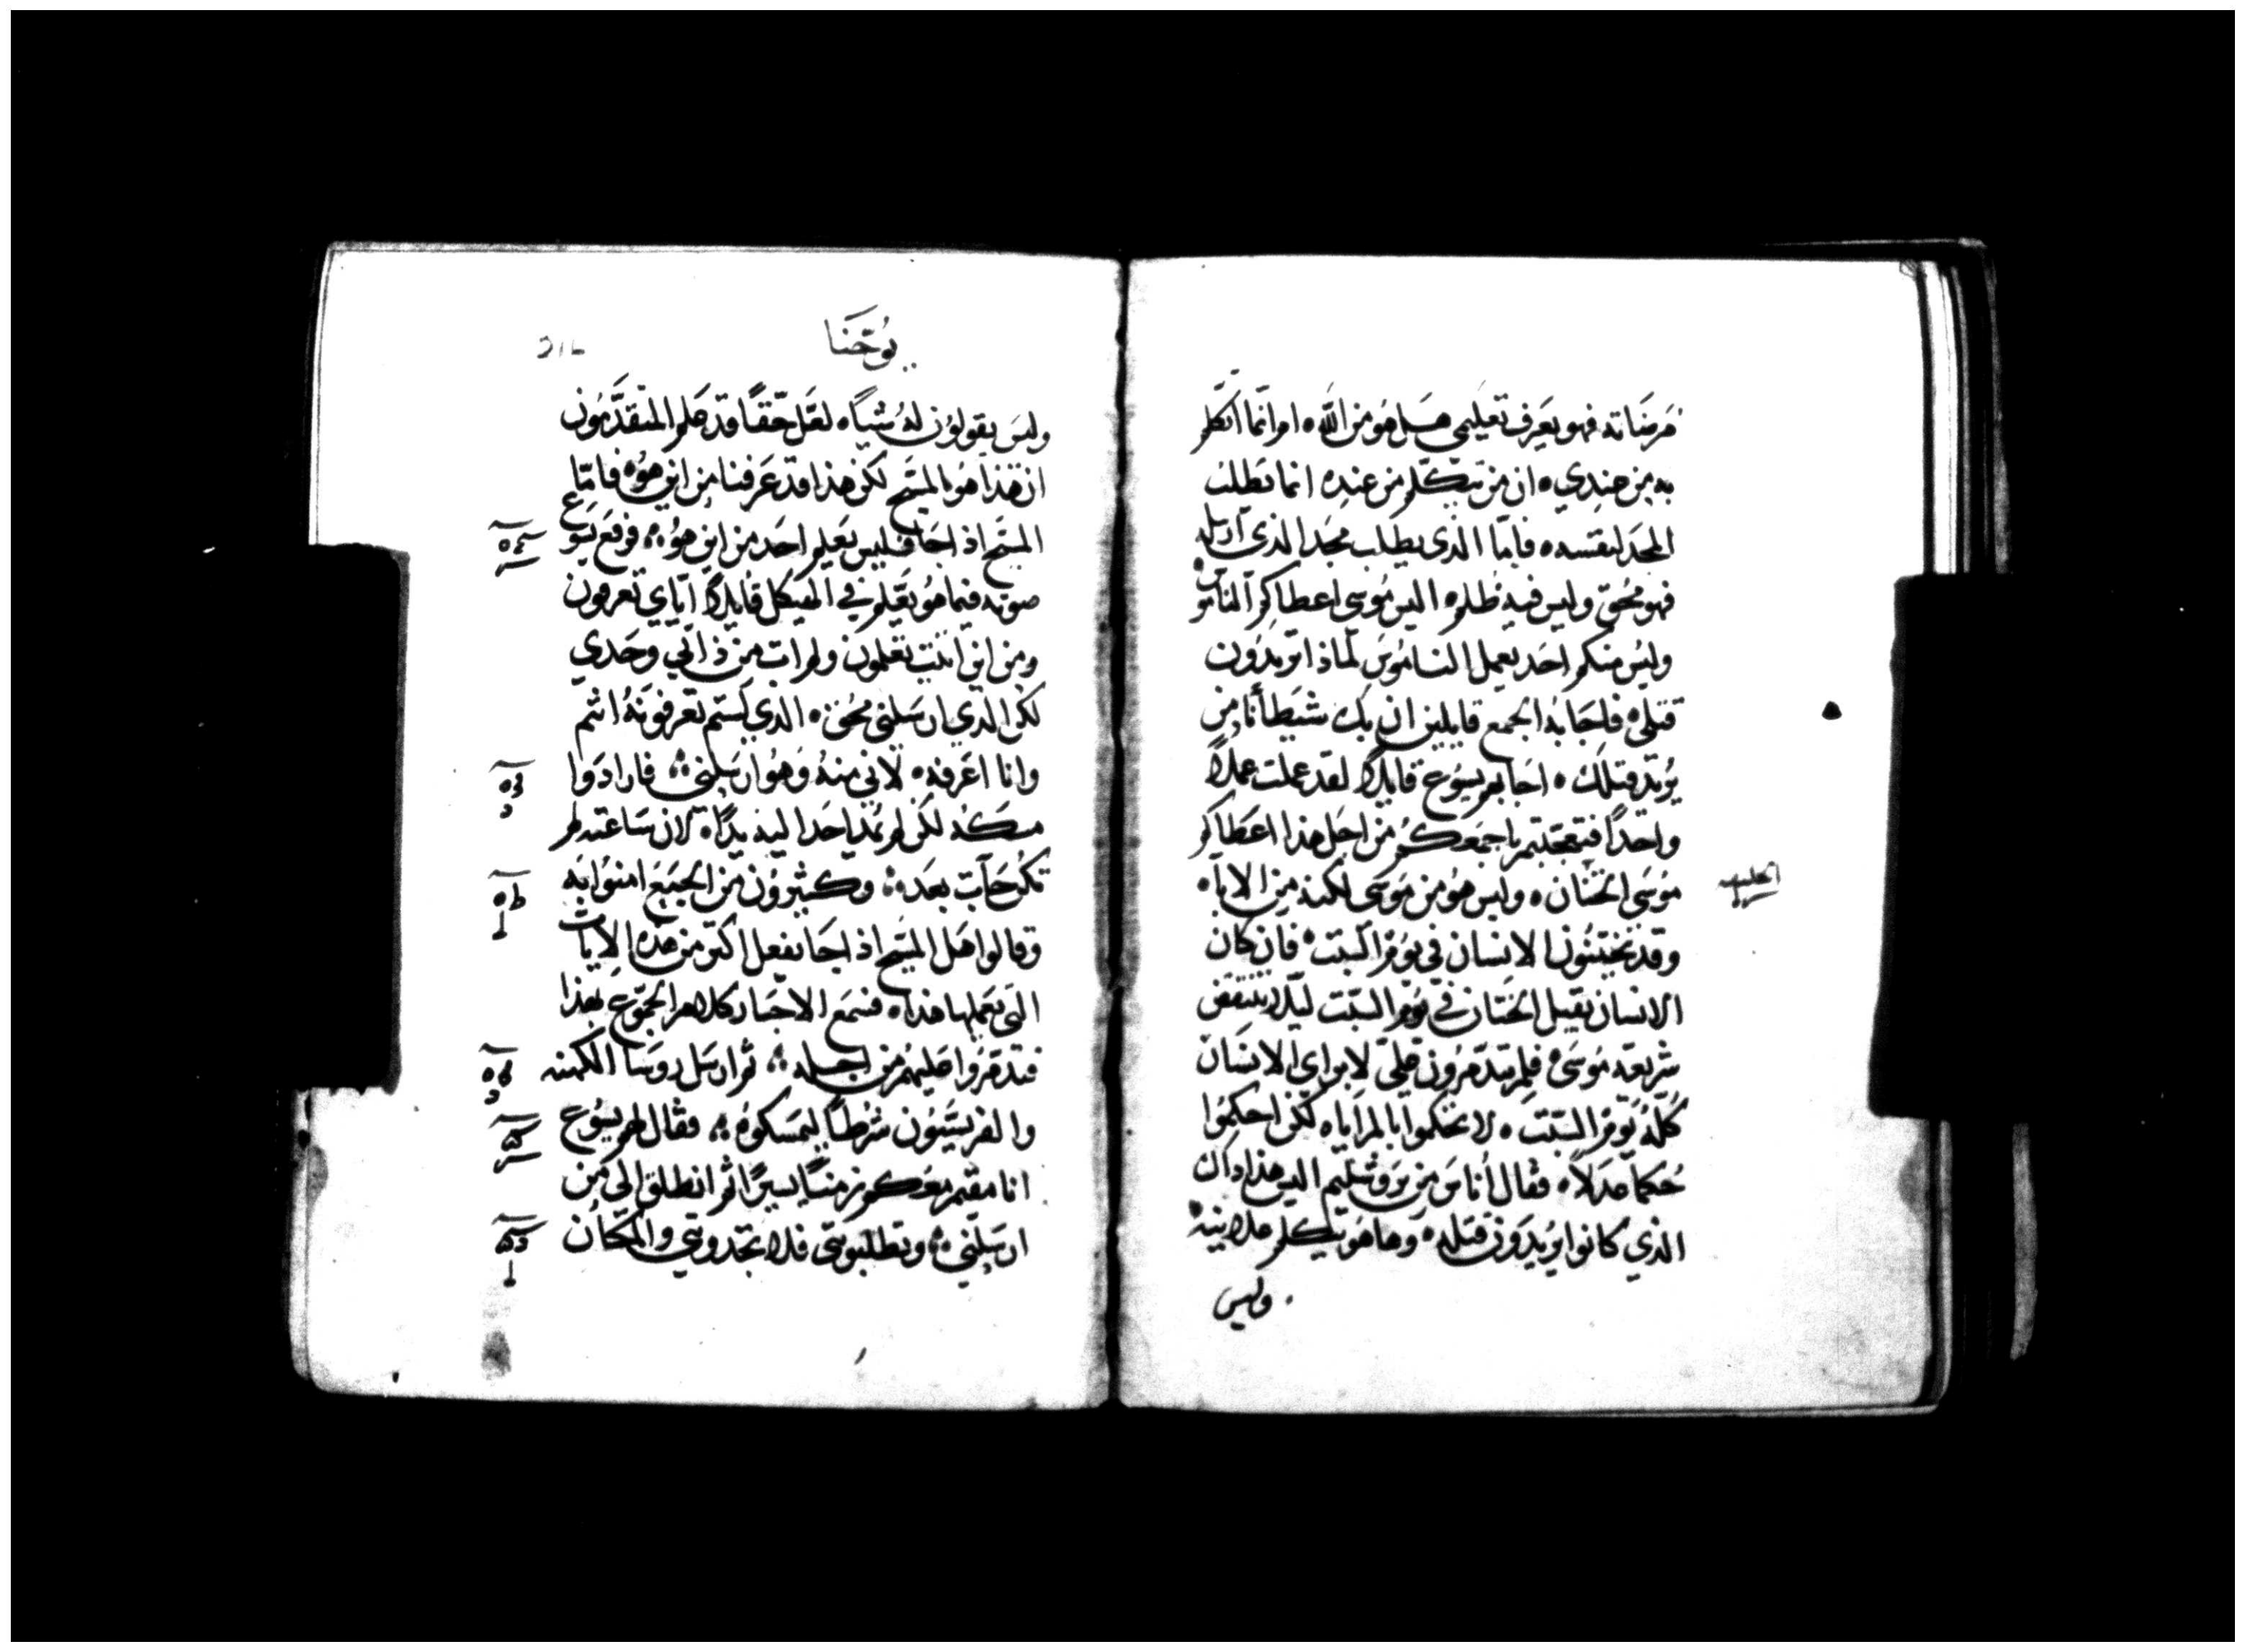 مَرضَاته فهو يعَرِف تعَليمي هَل هوُ من الله ام انمّا اتكلم
به من عندي ان من يتكلم من عنده انما يطلبُ
المجد لنفسه فامّا الذي يطلب مجَد الذي ارسله
فهو محُق وليس فيه ظلم اليس موُسى اعطاكم الناموس
وليسُ منكم احَد يعمل الناموُس لماذا تريدوُن
قتلي فاجَابهُ الجمع قايلين ان بك شيطاناً من
يريد قتلك اجَابهم يسوُع قايلاً لقد عملت عملاً
واحداً فتعجبتم باجمَعكم من اجَل هذا اعطاكم
موُسَى الختان وليس هوُ من موَسَى لكنه من الاباء
وقد تختنوُن الانسان في يوَم السَبت فان كان
الانسان يقبل الختان في يوَم السَبت ليلا تنتقض
شريعَة موُسَى فلم تتذمروُن عليّ لابراي الانسَان
كُلّهُ يوَم السَبت لا تحكموا بالمراياه لكن احكموُا
حُكماً عدَلاً فقال أناسَ من يروَشليم اليس هذا ذاك
الذي كانوا يريدَون قتله وها هوُ يتكلم علانيه
وليس
يوُحَنا
وليسَ يقولوُن لهُ شياً لعَل حقاً قد علم المتقدَّموُن
ان هَذا هوُ المسَيح لكن هذا قد عَرفنا من اين هوُ فامّا
المسَيح اذ اجَا فليس يَعلم احَد من اين هوُ فرفعَ يسَوع
صوته فيما هوُ يعَلم في الهيكل قايلاً ايّاي تعرفون
ومن اين انيت تعلمون ولم ات من ذاتي وحَدي
لكن الذي ارسَلني محُق الذي لستم تعَرفونهَُ انتم
وانا اعَرفه لاني منهُ وَهوُ ارسَلني فارادَوا
مسكهُ لكن لم يمُد احَدا اليه يداً لان سَاعته لم
تكُن جَآت بعدَ وكثيروُن من الجمَع امنوُا به
وقالوا هَل المسَيح اذ اجَا يفعل اكثر من هذه الايات
التي يعَملها هذا فسَمع الاحبَار كلام الجموع بهذا
فتذمّروُا عليهم من اجله ثم ارسَل روسَا الكهنه
والفريسَيون شرُطاً ليمسَكوهُ فقال لهم يسوُع
انا مقيم معَكم زمنياً يسيراً ثم انطلق الى من
ارسَلني وتطلبوُني فلا تجَدوني والمكان